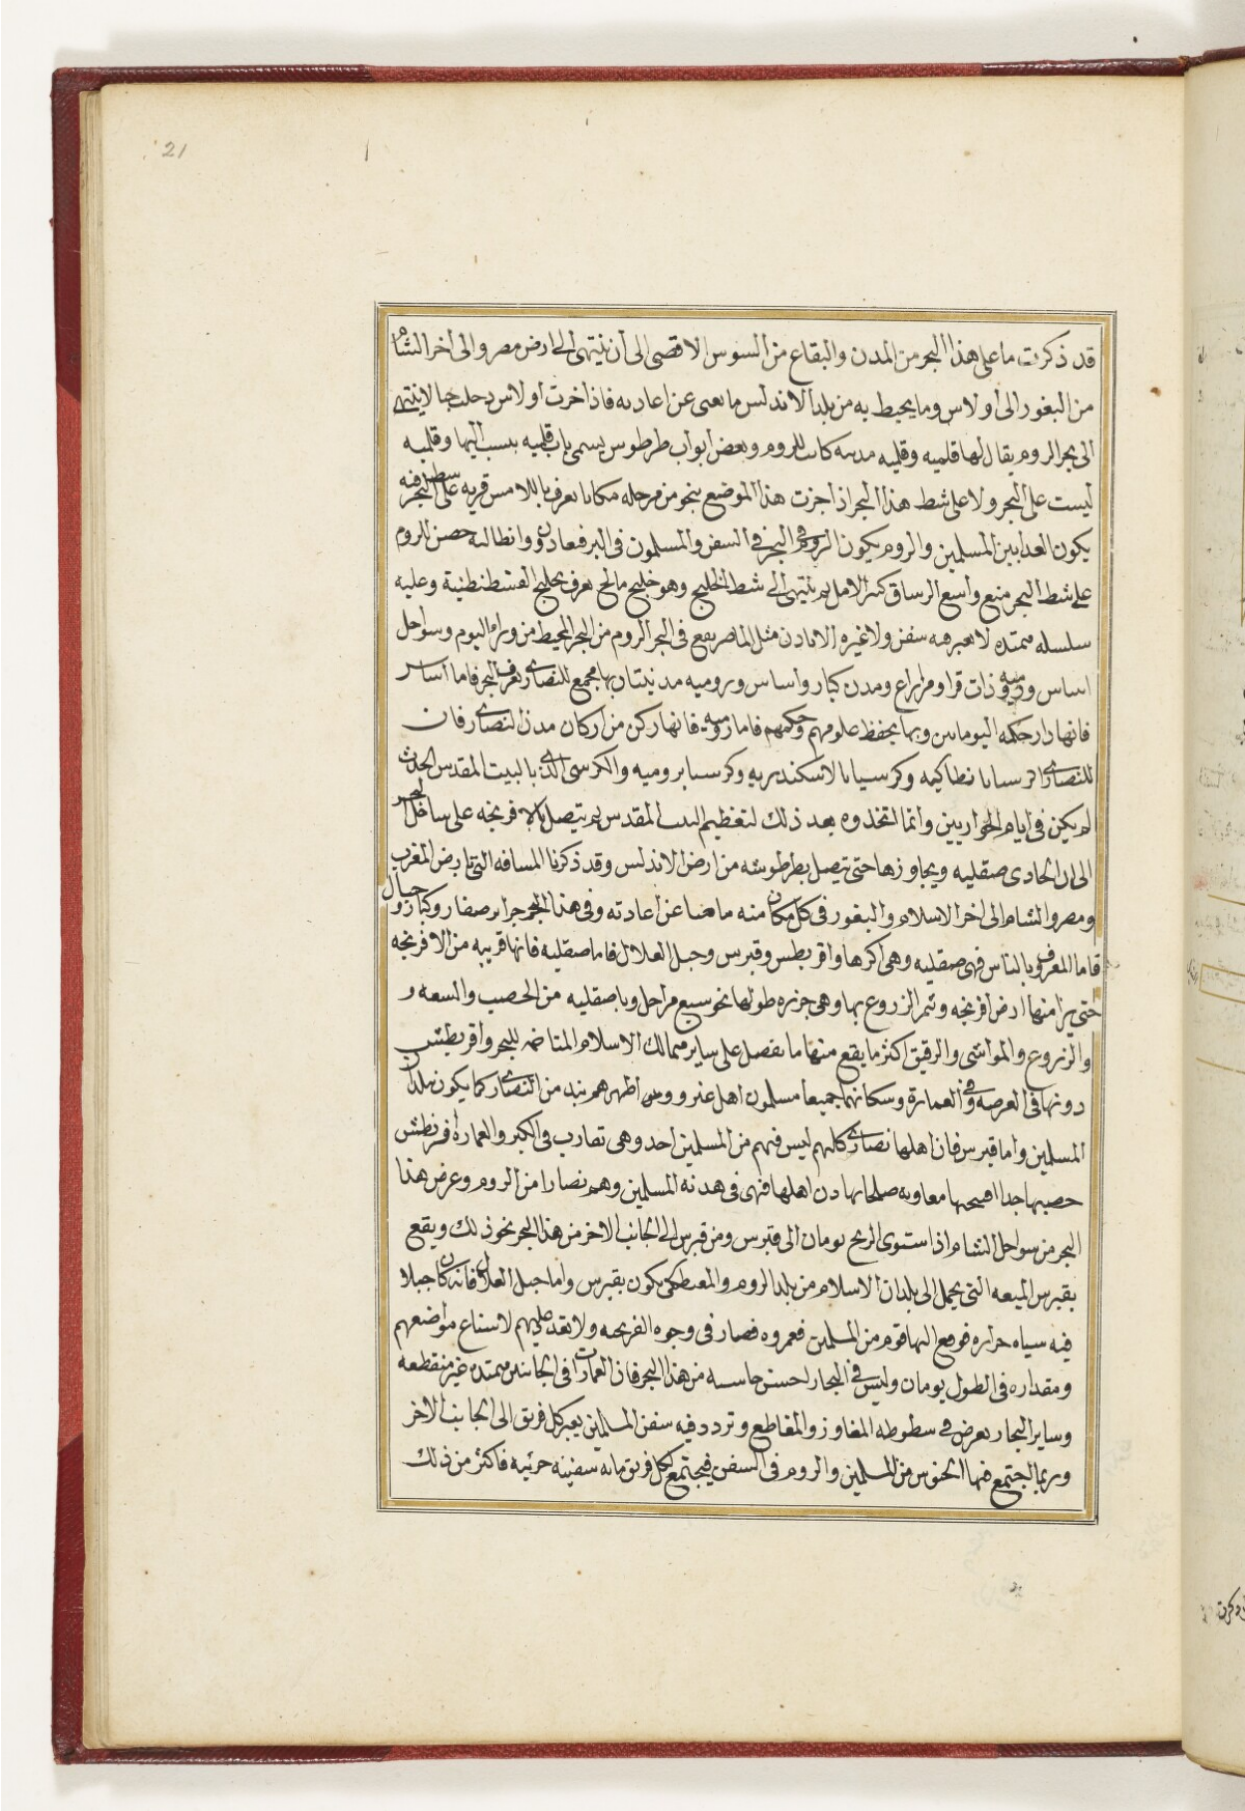 21
قد ذكرت ما على هذا البحر من المدن والبقاع من السوس الاقصى الى ان ينتهى الى ارض مصر والى اخر الشام
من الثغور الى اولاس وما يحيط به من بلد الاندلس ما يغنى عن اعادته فاذا اخرت اولاس دخلت جبالا ينتهى
الى بحر الروم يقال لها قلميه وقلميه مدينه كانت للروم وبعض ابواب طرطوس يسمى باب قلميه ينسب اليها وقلميه
ليست على البحر ولا على شط هذا البحر اذا جزت هذا الموضع بنحو من مرحله مكانا يعرف باللامس قريه على شط البحر فيه
يكون الفدا بين المسلمين والروم يكون الروم فى البحر فى السفن والمسلمون فى البر فيفادون وانطاليه حصن للروم
على شط البحر منيع واسع الرساق كثير الاهل ثم ينتهى الى شط الخليج وهو خليج مالح يعرف بخليج القسطنطنية وعليه
سلسله ممتده لا يعبرها سفن ولا غيره الا باذن مثل الماصر يقع فى البحر الروم من البحر المحيط من وراء اليوم وسواحل
اساس وروميه ذات قرا ومزارع ومدن كبار واساس وروميه مدينتان بها مجمع للنصارى بقرب البحر فاما اساس
فانها دار حكمه اليونانيين وبها يحفظ علومهم وحكمهم فاما روميه فانها ركن من اركان مدن النصارى فان
للنصارى كرسيا بانطاكيه وكرسيا بالاسكندريه وكرسيا بروميه والكرسى الذى بالبيت المقدس المحدث
لم يكن فى ايام الحواريين وانما اتخذوه بعد ذلك لتعظيم البيت المقدس ثم يتصل بالافرنجه على ساحل البحر
الى ان يحاذى صقليه ويجاوزها حتى يتصل بطرطوشه من ارض الاندلس وقد ذكرنا المسافه التى بارض المغرب
ومصر والشام الى اخر الاسلام والثغور فى كل مكان منه ما يغنا عن اعادته وفى هذا البحر جزاير صغار وكبار وجبال
فاما المعروف بالناس فهى صقليه وهى اكبرها واقريطس وقبرس وجبل القلال فاما صقليه فانها قريبه من الافرنجه
حتى يرا منها ارض افرنجه وثمر الزروع بها وهى جزيره طولها نحو سبع مراحل وبا صقليه من الخصب والسعه و
والزروع والمواشى والرقيق اكثر ما يقع منها ما يفضل على ساير ممالك الاسلام المتاخمه للبحر واقريطش
دونها فى العرصه وفى العمارة وسكانهما جميعا مسلمون اهل غزو وبين اظهرهم نبذ من النصارى كما يكون ببلد
المسلمين واما قبرس فان اهلها نصارى كلهم ليس فيهم من المسلمين احد وهى تقارب فى الكبر والعماره اقريطش
خصيبها جدا افتتحها معاويه صلحا بهادن اهلها فهى فى هدنه المسلمين وهم نصارا من الروم وعرض هذا
البحر من سواحل الشام اذا استوى الريح يومان الى قبرس ومن قبرس الى الجانب الاخر من هذا البحر نحو ذلك ويقع
بقبرس الميعه التى يحمل الى بلدان الاسلام من بلد الروم والمصطكى يكون بقبرس واما جبل القلال فانه كان جبلا
فيه مياه حراره فوقع اليها قوم من المسلمين فعمروه فصار فى وجوه الفرنجه ولا يقدر عليهم لامتناع مواضعهم
ومقداره فى الطول يومان وليس فى البحار احسن حاشيه من هذا البحر فان العمارات فى الجانبين ممتده غير منقطعه
وساير البحار يعرض فى شطوطه المفاوز والمقاطع وتردد فيه سفن المسلمين يعبر كل فريق الى الجانب الاخر
وربما اجتمع فيها الجنوس من المسلمين والروم فى السفن فيجتمع لكل فريق مايه سفينه حربيه فاكثر من ذلك